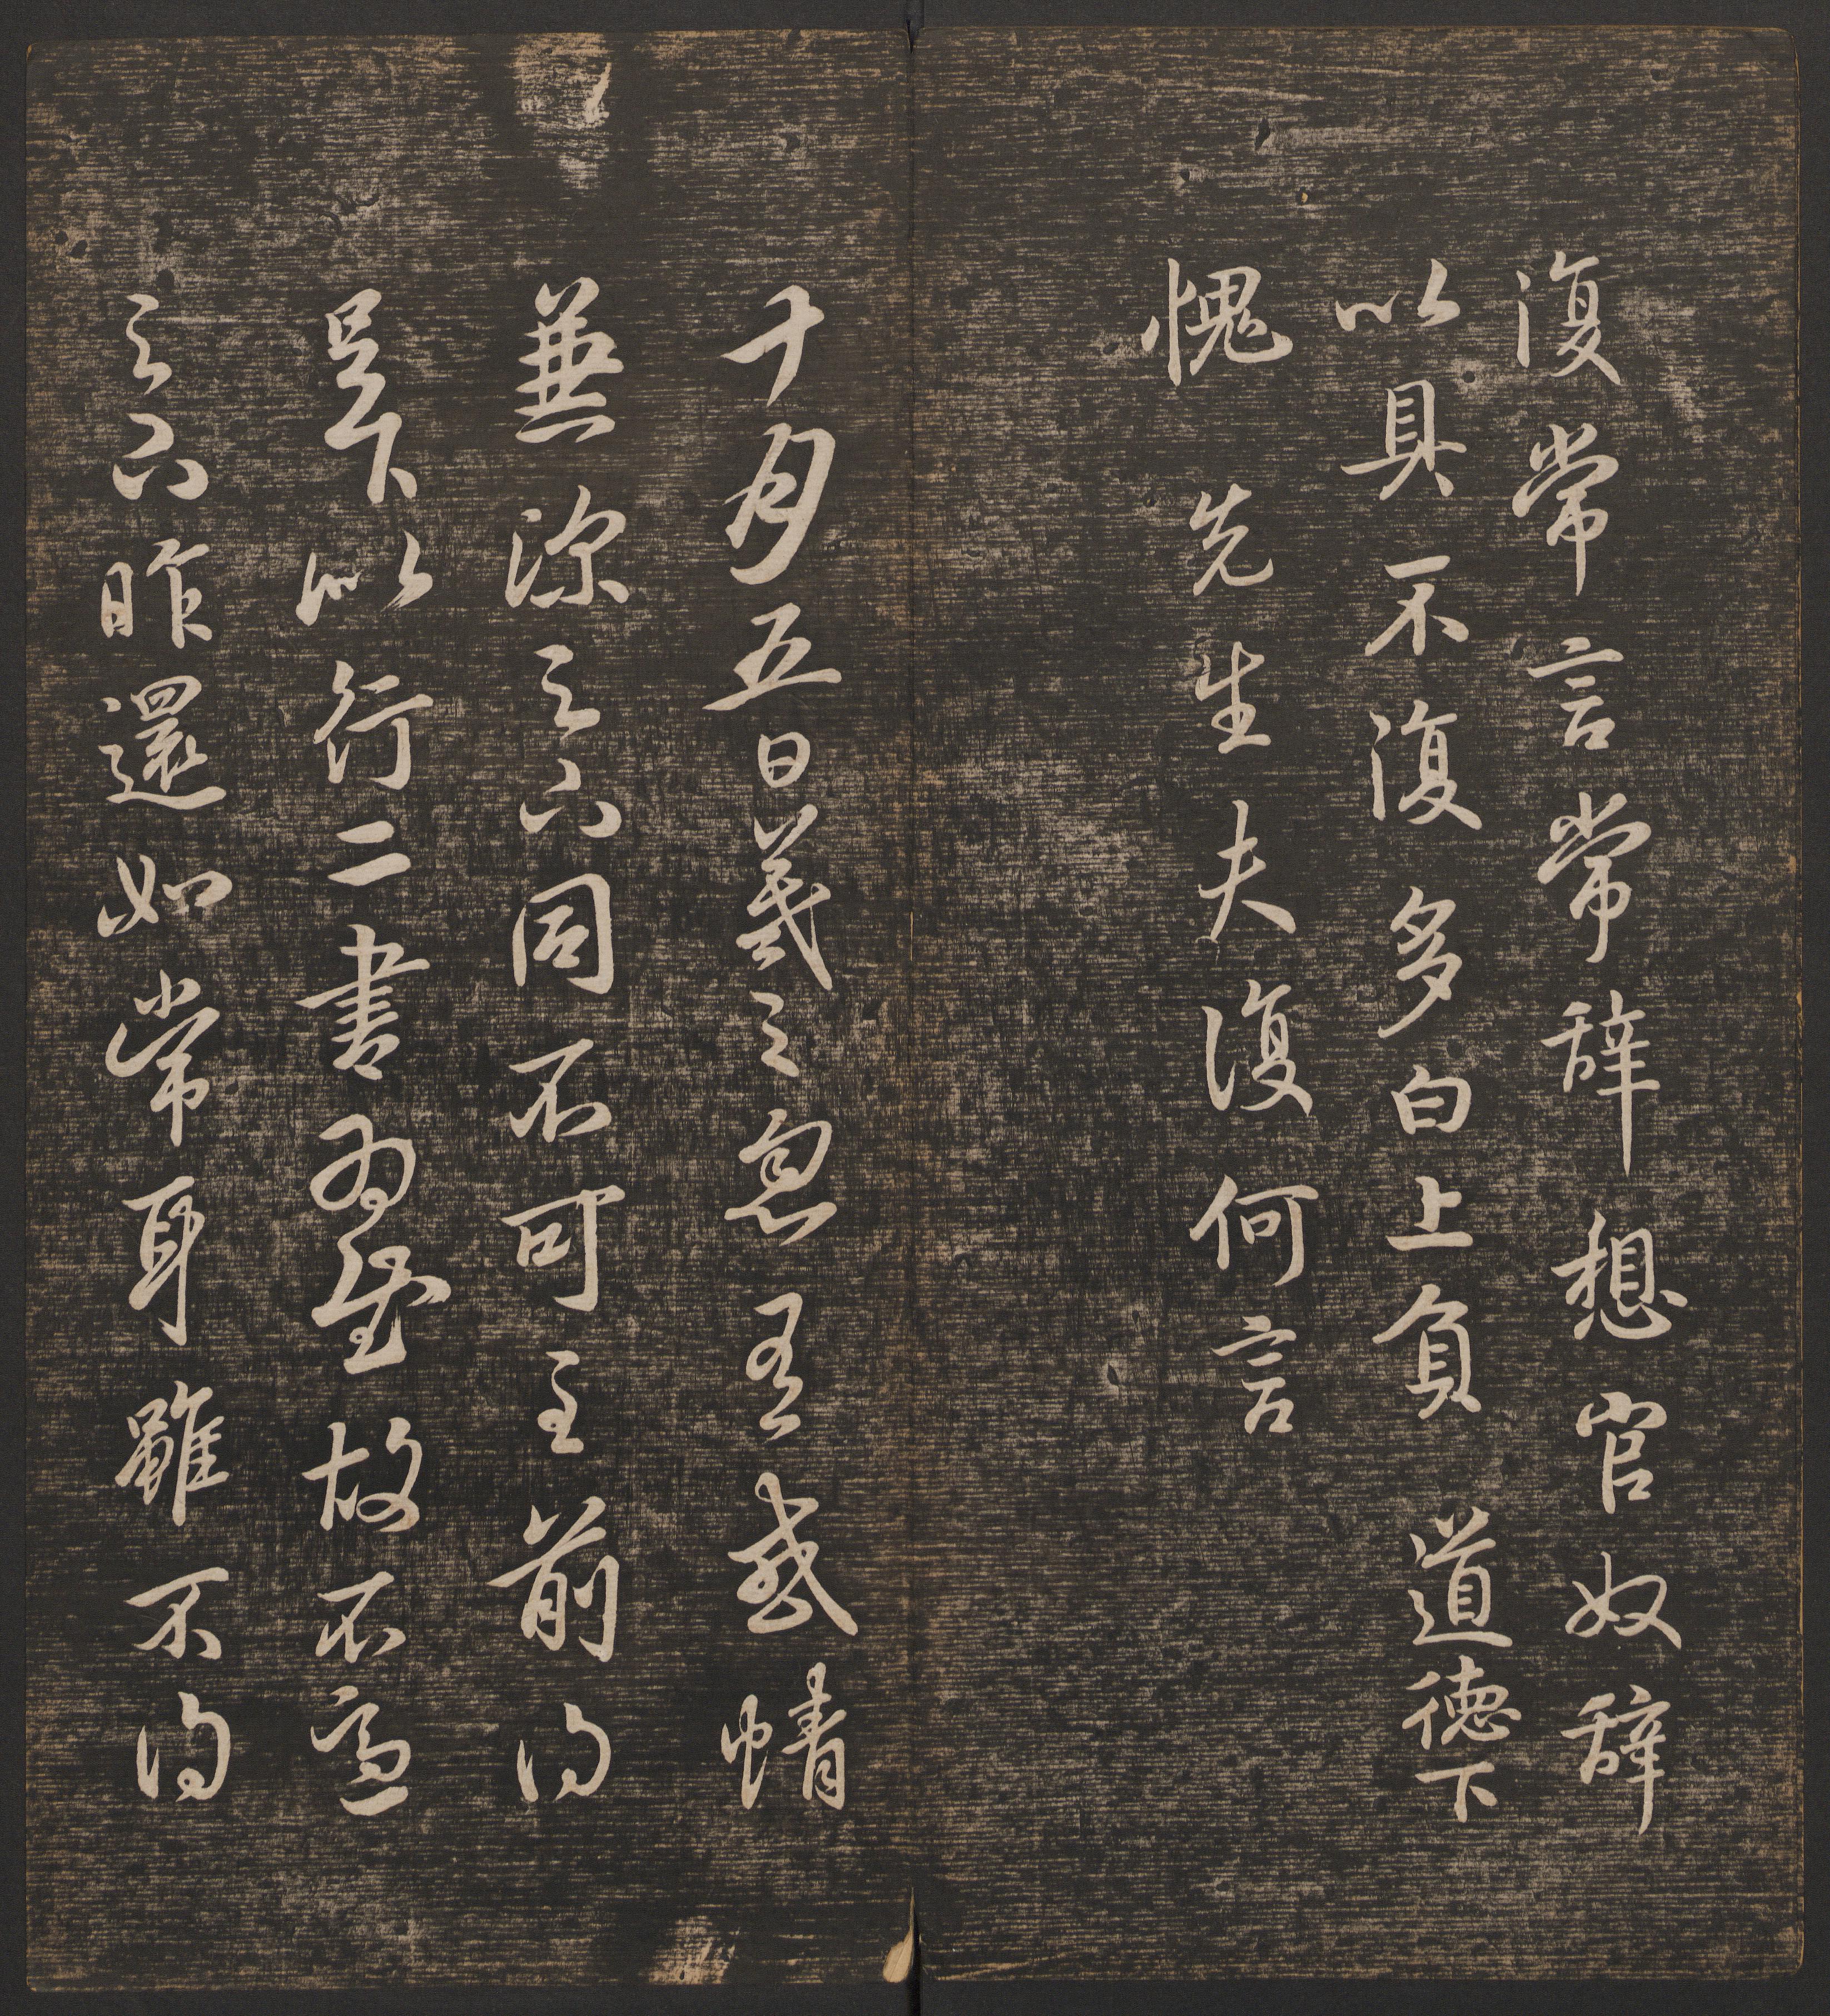 復常言常辭想官奴辭
以具不復多白上負道德下
愧先生夫復何言
十月五日羲之感情
兼深同不可言前得
足下以行二書為慰故不
昨還如常耳雖不得